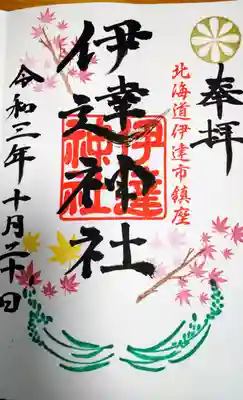 奉拝
北海道伊達市鎮座
伊達神社
伊達神社
令和三年十月二十日